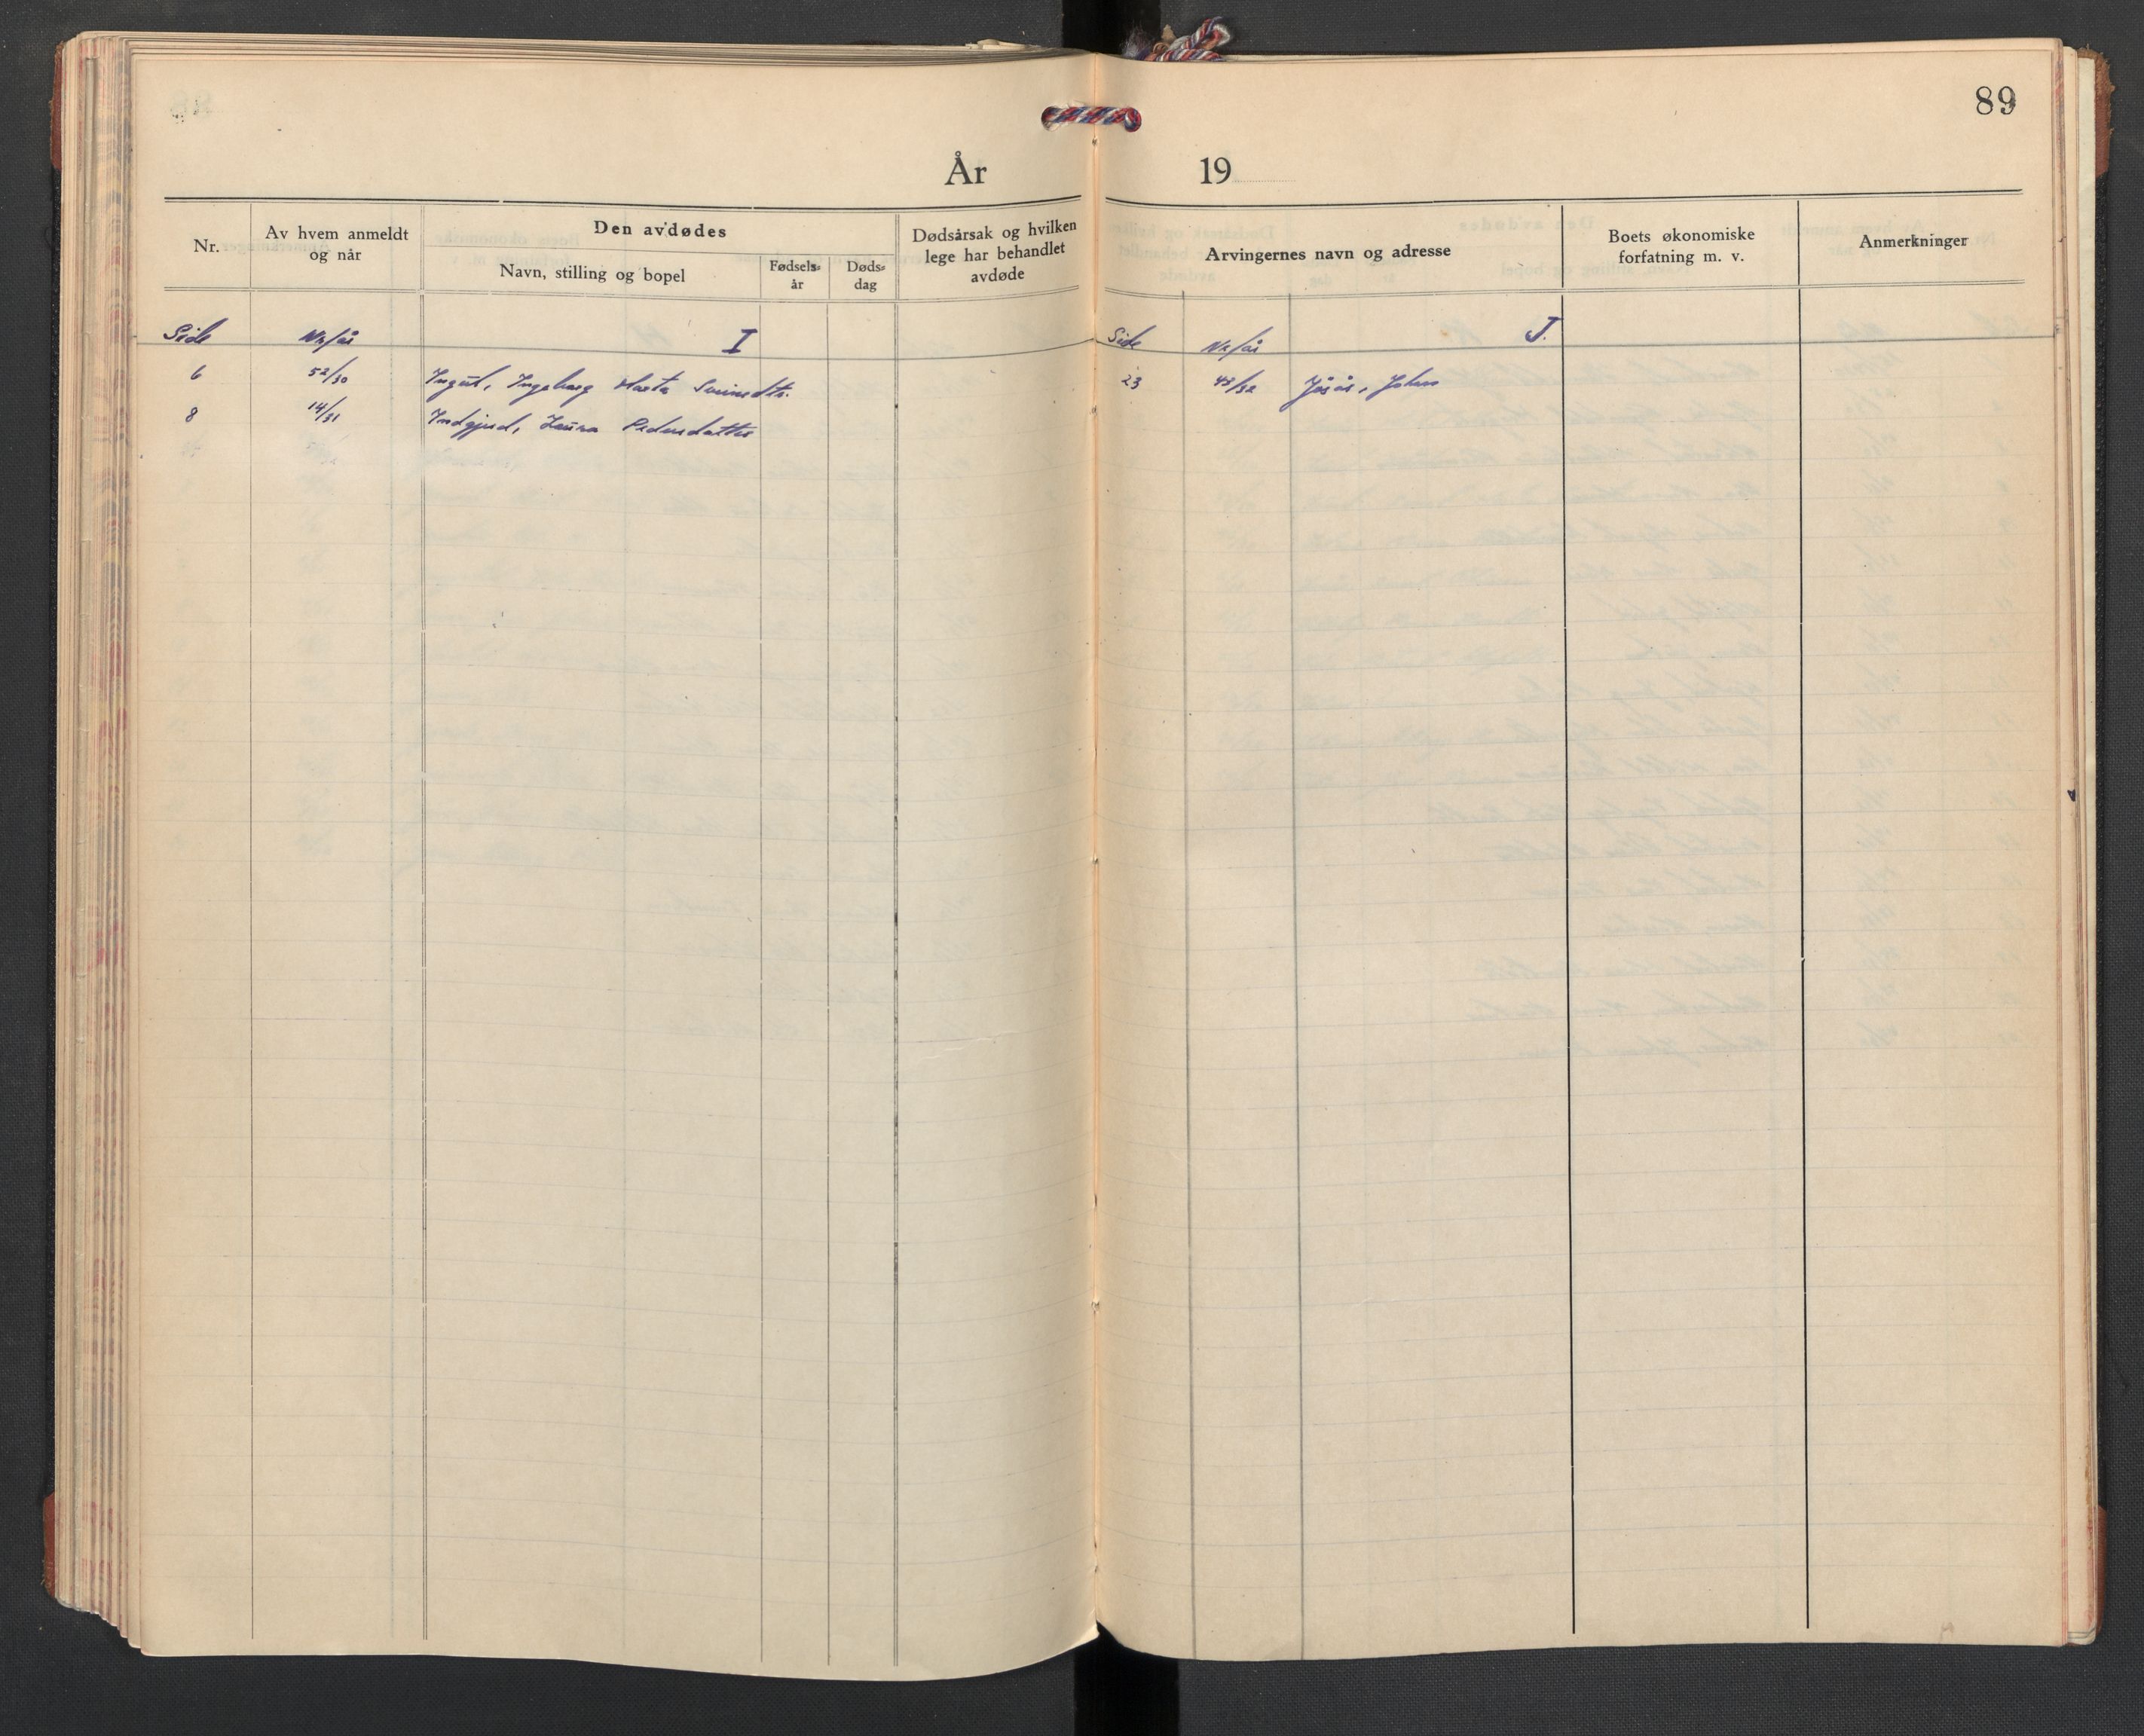 89
År 19
Nr.
Av hvem anmeldt og når
Den avdødes
Navn, stilling og bopel
Fødsels-år
Døds-dag
Dødsårsak og hvilken lege har behandlet avdøde
Arvingernes navn og adresse
Boets økonomiske forfatning m. v.
Anmerkninger
Side Nr/år I
6 52/30 Ingeborg Marta
8 14/31 Indgjerd, Laura Pedersdatter
Side Nr/år J.
23 43/32 Jøsås, Johan